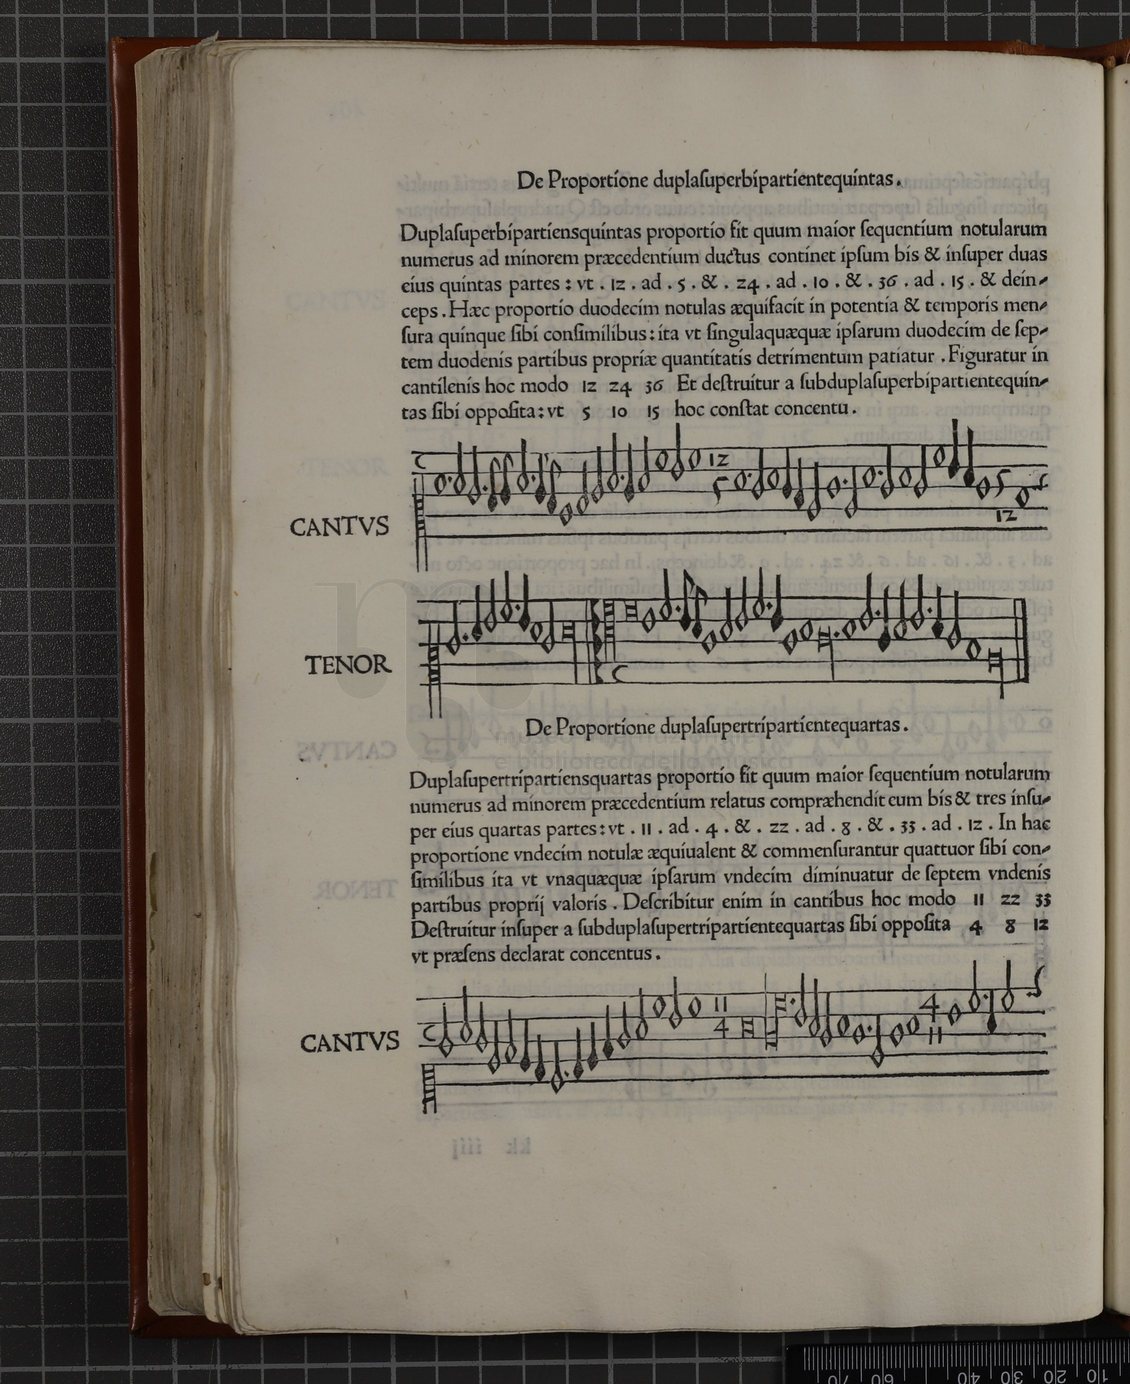 De Proportione duplasuperbipartientequintas.
Duplasuperbipartiensquintas proportio fit quum maior sequentium notularum
numerus ad minorem præcedentium ductus continet ipsum bis & insuper duas
eius quintas partes : vt . 12 . ad . 5 . & . 24 . ad . 10 . & . 36 . ad . 15 . & dein-
ceps . Hæc proportio duodecim notulas æquifacit in potentia & temporis men-
sura quinque sibi consimilibus : ita vt singulaquæquæ ipsarum duodecim de sep-
tem duodenis partibus propriæ quantitatis detrimentum patiatur . Figuratur in
cantilenis hoc modo 12 24 36 Et destruitur a subduplasuperbipartientequin-
tas sibi opposita : vt 5 10 15 hoc constat concentu .
12
5
5
12
CANTVS
TENOR
De Proportione duplasupertripartientequartas .
Duplasupertripartiensquartas proportio fit quum maior sequentium notularum
numerus ad minorem præcedentium relatus compræhendit eum bis & tres insu-
per eius quartas partes : vt . 11 . ad . 4 . & . 22 . ad . 8 . & . 33 . ad . 12 . In hac
proportione vndecim notulæ æquiualent & commensurantur quattuor sibi con-
similibus ita vt vnaquæquæ ipsarum vndecim diminuatur de septem vndenis
partibus proprij valoris . Describitur enim in cantibus hoc modo 11 22 33
Destruitur insuper a subduplasupertripartientequartas sibi opposita 4 8 12
vt præsens declarat concentus .
11
4
4
11
CANTVS